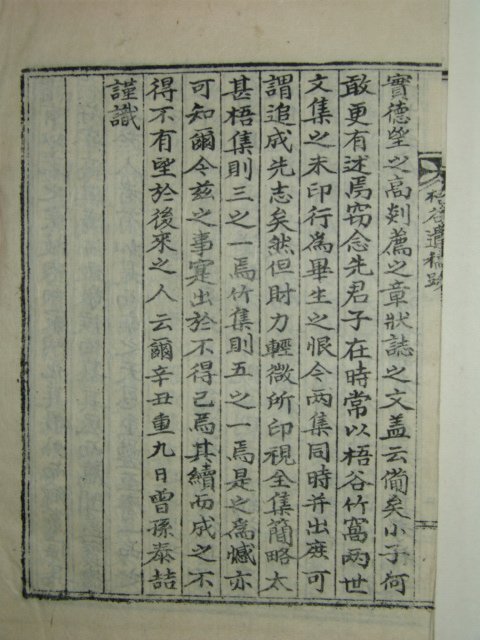 梧谷遺稿跋
實德望之高剡薦之章狀誌之文盖云備矣小子何
敢更有述焉窃念先君子在時常以梧谷竹窩两世
文集之未印行為畢生之恨今两集同時并出庶可
謂追成先志矣然但財力輕微所印視全集簡略太
甚梧集則三之一焉竹集則五之一焉是之為憾亦
可知爾今玆之事寔出於不得已焉其續而成之不
得不有望於後來之人云爾辛丑重九日曾孫泰喆
謹識